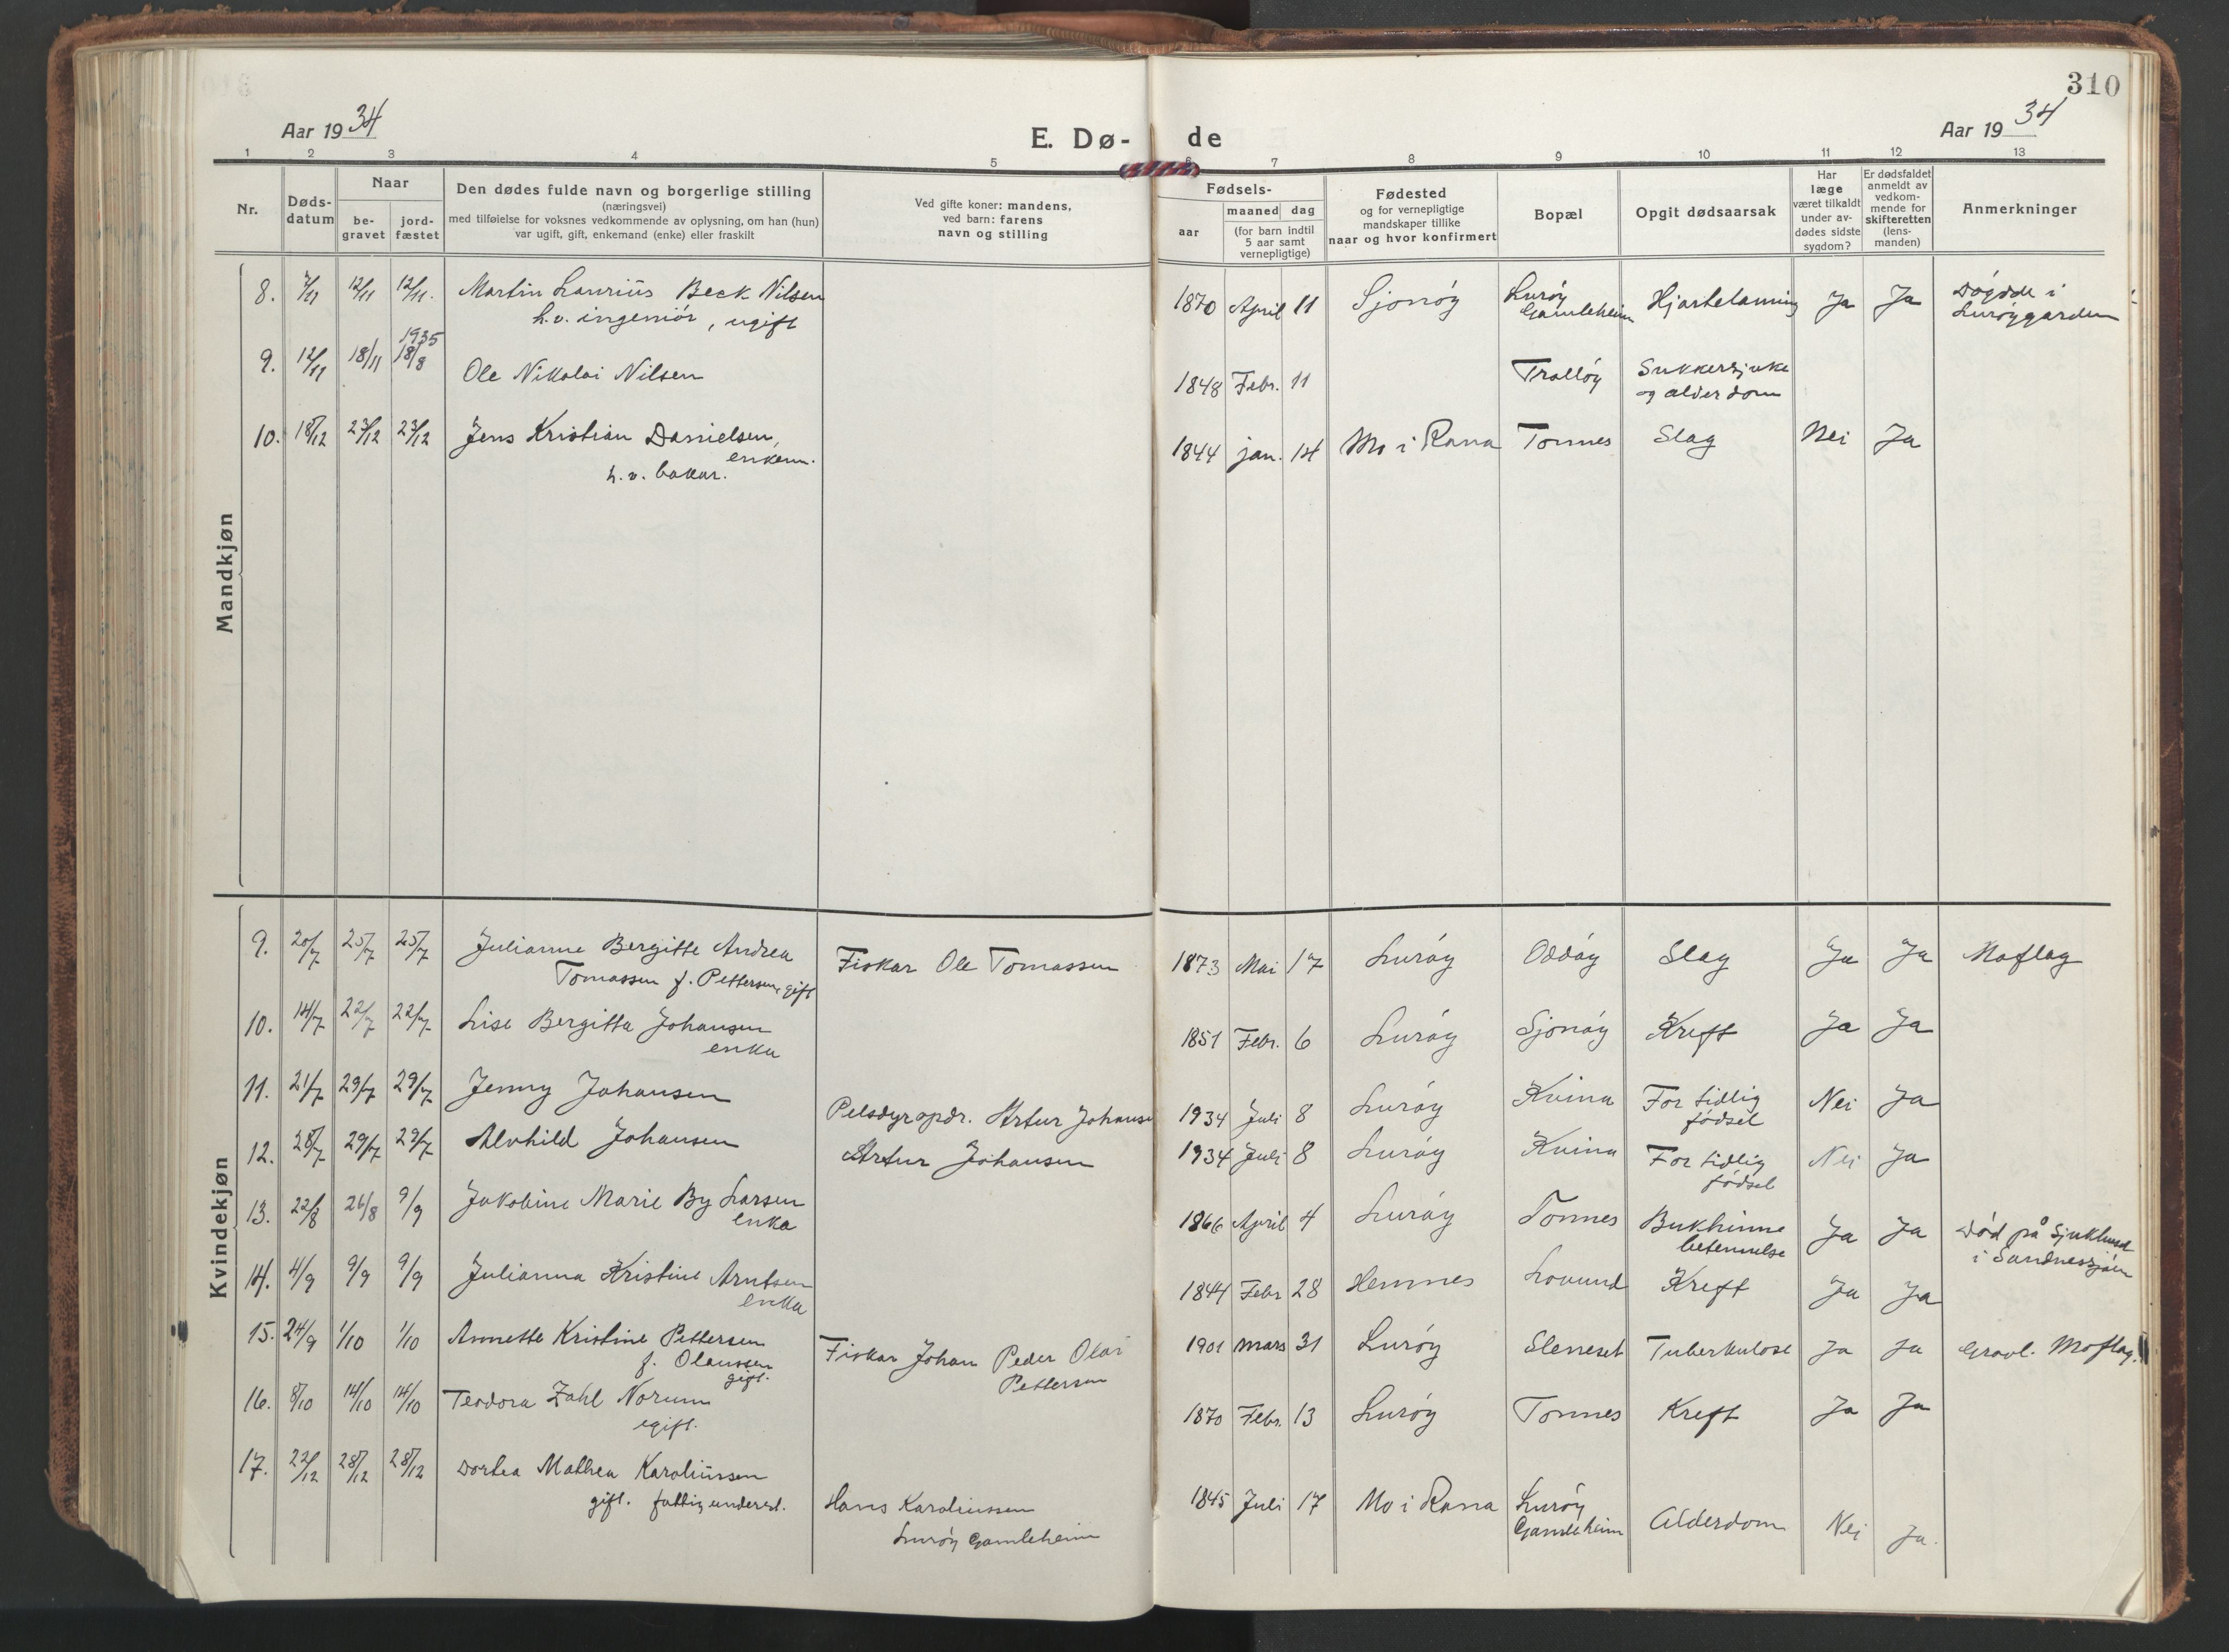 310
Aar 1934
E. Dø-
de
Aar 1934
1 2 3 4 5 6 7 8 9 10 11 12 13
Nr.
Døds-
datum
Naar
be-
gravet
jord-
fæstet
Den dødes fulde navn og borgerlige stilling
(næringsvei)
med tilføielse for voksnes vedkommende av oplysning, om han (hun)
var ugift, gift, enkemand (enke) eller fraskilt
Ved gifte koner: mandens,
ved barn: farens
navn og stilling
Fødsels-
aar
maaned dag
(for barn indtil
5 aar samt
vernepligtige)
Fødested
og for vernepligtige
mandskaper tillike
naar og hvor konfirmert
Bopæl
Opgit dødsaarsak
Har
læge
været tilkaldt
under av-
dødes sidste
sygdom?
Er dødsfaldet
anmeldt av
vedkom-
mende for
skifteretten
(lens-
manden)
Anmerkninger
Mandkjøn
8. 7/11 12/11 12/11. Martin Laurius Beck Nilsen 1870 April 11 Sjonøy Lurøy Hjartelamning Ja Ja Døydde i
h.v. ingeniør, ugift Gamleheim Lurøygarden
1935
9. 12/11 18/11 18/8 Ole Nikolai Nilsen 1848 Febr. 11 Tralløy Sukkersjuke
og alderdom
10. 18/12 23/12 23/12 Jens Kristian Danielsen, 1844 jan. 14 Mo i Rana Tonnes Slag Nei Ja
enkem.
h.v. bakar.
Kvindekjøn
9. 20/7 25/7 25/7 Julianne Bergitte Andrea Fiskar Ole Tomassen 1873 Mai 17 Lurøy Oddøy Slag Ja Ja Moflag
Tomassen f. Pettersen, gift
10. 14/7 22/7 22/7 Lise Bergitta Johansen 1851 Febr. 6 Lurøy Sjonøy Kreft Ja Ja
enka
11. 21/7 29/7 29/7 Jenny Johansen Pelsdyropdr. Artur Johanse 1934 Juli 8 Lurøy Kvina For tidlig Nei Ja
fødsel
12. 28/7 29/7 29/7 Alvhild Johansen Artur Johansen 1934 Juli 8 Lurøy Kvina For tidlig Nei Ja
fødsel
13. 22/8 26/8 9/9 Jakobine Marie By Larsen 1866 April 4 Lurøy Tonnes Bukhinne Ja Ja Død på Sjukhuset
enka betennelse i Sandnessjøen
14. 4/9 9/9 9/9 Julianna Kristine Arntsen 1844 Febr 28 Hemnes Lovund Kreft Ja Ja
enka
15. 24/9 1/10 1/10 Annette Kristine Pettersen Fiskar Johan Peder Olai 1901 Mars 31 Lurøy Sleneset Tuberkulose Ja Ja Gravl. Moflag.
f. Olaussen Pettersen
gift.
16. 8/10 14/10 14/10 Teodora Zahl Norum 1870 Febr. 13 Lurøy Tonnes Kreft Ja Ja
ugift.
17. 22/12 28/12 28/12 Dortea Mathea Karoliussen 1845 Juli 17 Mo i Rana Lurøy Alderdom Nei Ja.
gift. fattigunderst. Hans Karoliussen Gamleheim
Lurøy Gamleheim